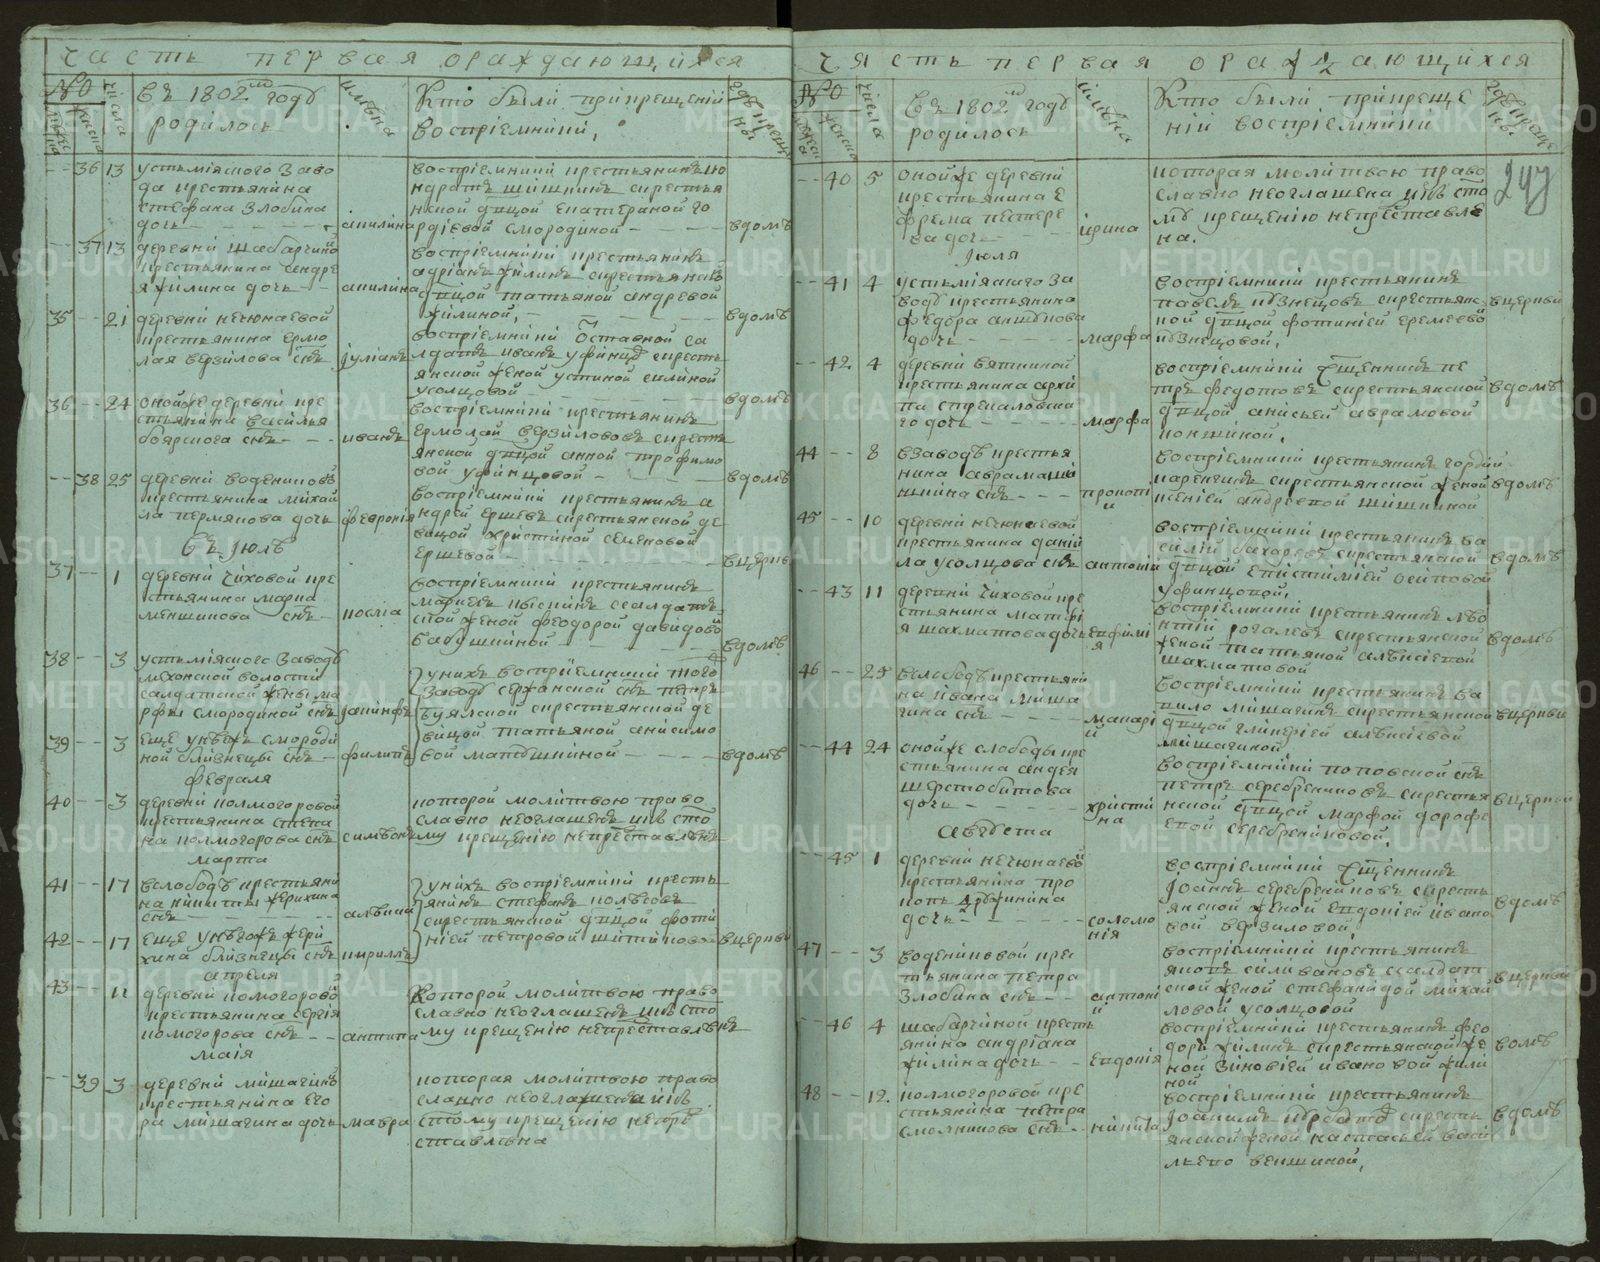 часть первая ораждающихся
№
числа
въ 1802мъ годѣ
родилось
имѣна
Кто были прикрещеніи
воспріемники,
36 13 устьміяского заво
да крестьянина
стефана Злобина
дочь
акилина
воспріемники крестьянинъ ко
ндратъ шишкинъ скрестья
нской дѣвцой екатериной го
рдіевой смородиной
вдомѣ
37 13 деревни шабарчино
крестьянина андре
я жилина дочь
акилина
воспріемники крестьянинъ
адріанъ жилинъ скрестьянск
дѣвцой татьяной андревой
жилиной,
вдомѣ
35 21 деревни нечюнаевой
крестьянина ермо
лая верзилова снъ
іуліанъ
воспріемники оставной са
лдатъ иванъ уфинцо скресть
янской женой устиной силиной
усолцовой
вдомѣ
36 24 онойже деревни кре
стьянина василья
боярского снъ
иванъ
воспріемники крестьянинъ
ермолай верзиловъ скресть
янской дѣвцой анной трофимо
вой уфинцовой
вдомѣ
38 25 деревни воденниковѣ
крестьянина михай
ла пермякова дочь
февронія
воспріемники крестьянинъ а
ндрей ершевъ скрестьянской де
вицой христиной семеновой
ершевой
вцеркв
въ іюлѣ
37 1 деревни чиховой кре
стьянина марка
меншикова снъ
воспріемники крестьянинъ
маркелъ кыскинъ ссалдатъ
ской женой феодорой давидово
бабушкиной
вдомѣ
38 3 устьміяского заводѣ
мехонской волости
салдатской жены ма
рфы смородиной снъ
іакинфъ
унихъ воспріемники того
заводу сержанской снъ петръ
буялской скрестьянской де
вицой татьяной анисимо
вой матюшкиной
вдомѣ
39 3 еще унеежъ смороди
ной близнецы снъ
филипъ
февраля
40 3 деревни колмогоровой
крестьянина степа
на колмогорова снъ
симеонъ
которой молитвою право
славно неоглашенъ икъ сто
му крещенію непреставленъ
марта
41 17 вслободѣ крестьяни
на никиты жерихина
снъ
алѣкси
унихъ воспріемники кресть
янинъ стефанъ колѣсовъ
скрестьянской дѣвцой фоти
ніей петровой шитиково
вцеркви
42 17 еще унегоже жери
хина близнецы снъ
кириллъ
апреля
43 11 деревни комогорово
крестьянина сергія
комогорова снъ
антипа
которой молитвою право
славно неоглашенъ икъ сто
му крещенію непреставленъ
маія
39 3 деревни мишагино
крестьянина его
ра мишагина дочь
мавра
которая молитвою право
славно неоглашена икъ
стому крещенію непре
ставлѣна
часть первая ораждающихся
247
№
числа
въ 1802мъ годѣ
родилось
имѣна
Кто были прикреще
ніи воспріемники
40 5 онойже деревни
крестьянина е
фрема пестере
ва дочь
ирина
которая молитвою право
славно неоглашена икъ сто
мѣ крещенію непреставле
на.
іюля
41 4 устьміяского за
водѣ крестьянина
федора акшукова
дочь
марфа
воспріемники крестьянинъ
павелъ кѣзнецовъ скрестьянс
кой дѣвцой фотиніей еремеево
кѣзнецовой,
вцеркви
42 4 деревни вяткиной
крестьянина архи
па стрекаловска
го дочь
марфа
воспріемники священникъ пе
тръ федотовъ скрестьянской
дѣвцой анисьей аврамовой
кокшиной,
вдомѣ
44 8 взаводѣ крестья
нина аврама ши
шкина снъ
прокопі
й
воспріемники крестьянинъ гордій
паренкинъ скрестьянской женой
ксеніей андреевой шишкиной
вдомѣ
45 10 деревни нечюнаевой
крестьянина дани
ла усолцова снъ
антоній
воспріемники крестьянинъ ва
силій бахаревъ скрестьянской
дѣвцой епистиміей осиповой
уфинцовой,
вдомѣ
43 11 деревни чиховой кре
стьянина матфі
я шахматова дочь
евфимі
я
воспріемники крестьянинъ лѣо
нтій рогалевъ скрестьянской
женой татьяной алѣксіевой
шахматовой
вдомѣ
46 25 вслободѣ крестьяни
на ивана миша
гина снъ
макарі
й
воспріемники крестьянинъ ва
вило мишагинъ скрестьянской
дѣвцой гликеріей алѣксіевой
мишагиной
вцеркви
44 24 онойже слободы кре
стьянина андея
шерстобитова
дочь
христи
на
воспріемники поповской снъ
петръ серебрениковъ скрестья
нской дѣвцой марфой дорофе
евой серебрениковой.
вцеркви
августа
45 1 деревни нечюнаево
крестьянина про
копь дружинина
дочь
соломо
нія
воспріемники священникъ
іоаннъ серебрениковъ скресть
янской женой евдокіей ивано
вой верзиловой,
вдомѣ
47 3 воденниковой крес
тьянина петра
злобина снъ
антоні
й
воспріемники крестьянинъ
яковъ силивановъ ссалдат
ской женой стефанидой михай
ловой усолцовой
вцеркви
46 4 шабарчиной кресть
янина андріана
жилина дочь
евдокія
воспріемники крестьянинъ фео
доръ жилинъ скрестьянской же
ной зиновіей ивановой жили
ной
вомѣ
48 12. колмогоровой кре
стьянина петра
смолникова снъ
никита
воспріемники крестьянинъ
іоакимъ скресть
янской женой настасьей васи
льево векшиной,
вдомѣ